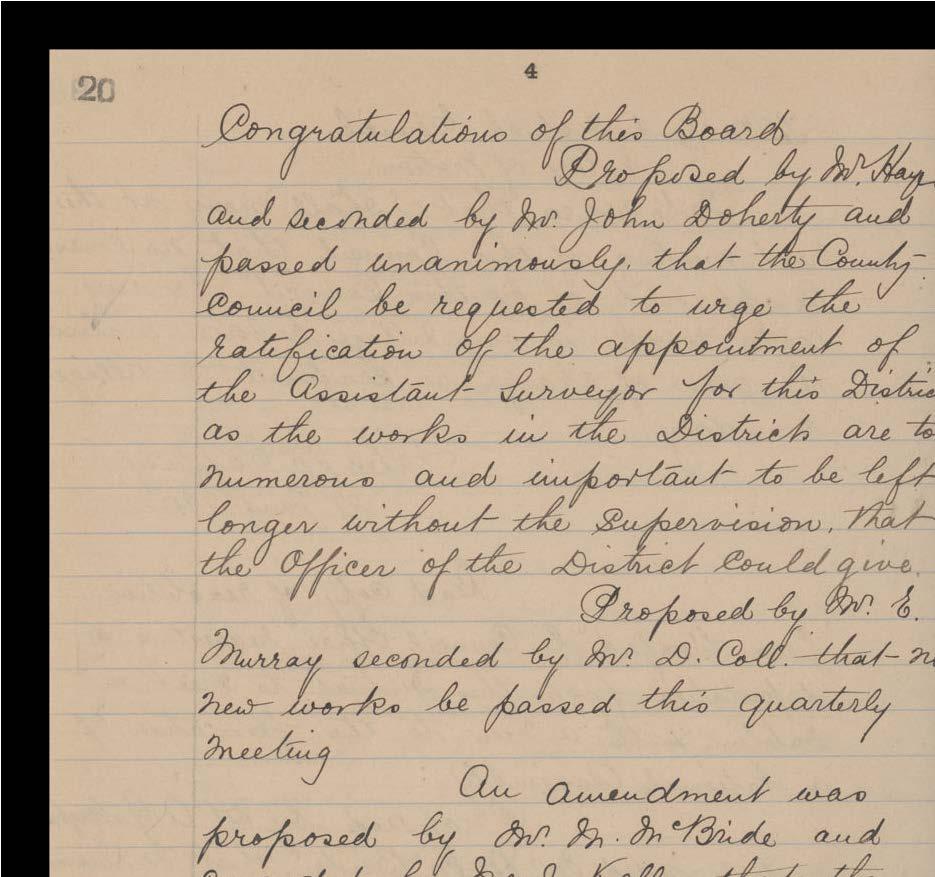 20
4
Congratulations of this Board
Proposed by Mr. Hay
and seconded by Mr. John Doherty and
passed unanimously. that the County
Council be requested to urge the
ratification of the appointment of
the Assistant Surveyor for this Distric
as the works in the District are to
numerous and important to be left
longer without the supervision. that
the Officer of the District could give.
Proposed by Mr. E.
Murray seconded by Mr. D. Coll. that n
new works be passed this quarterly
meeting
An amendment was
proposed by Mr. M. McBride and